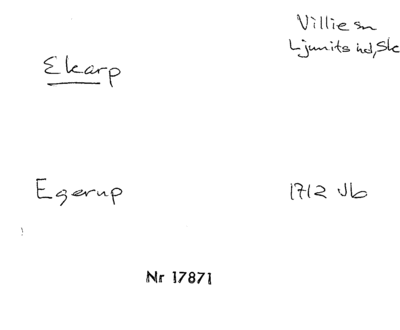 Villie sn
Ljunits hd, Sk
Ekarp
Egerup
1712 Jb
Nr 17871